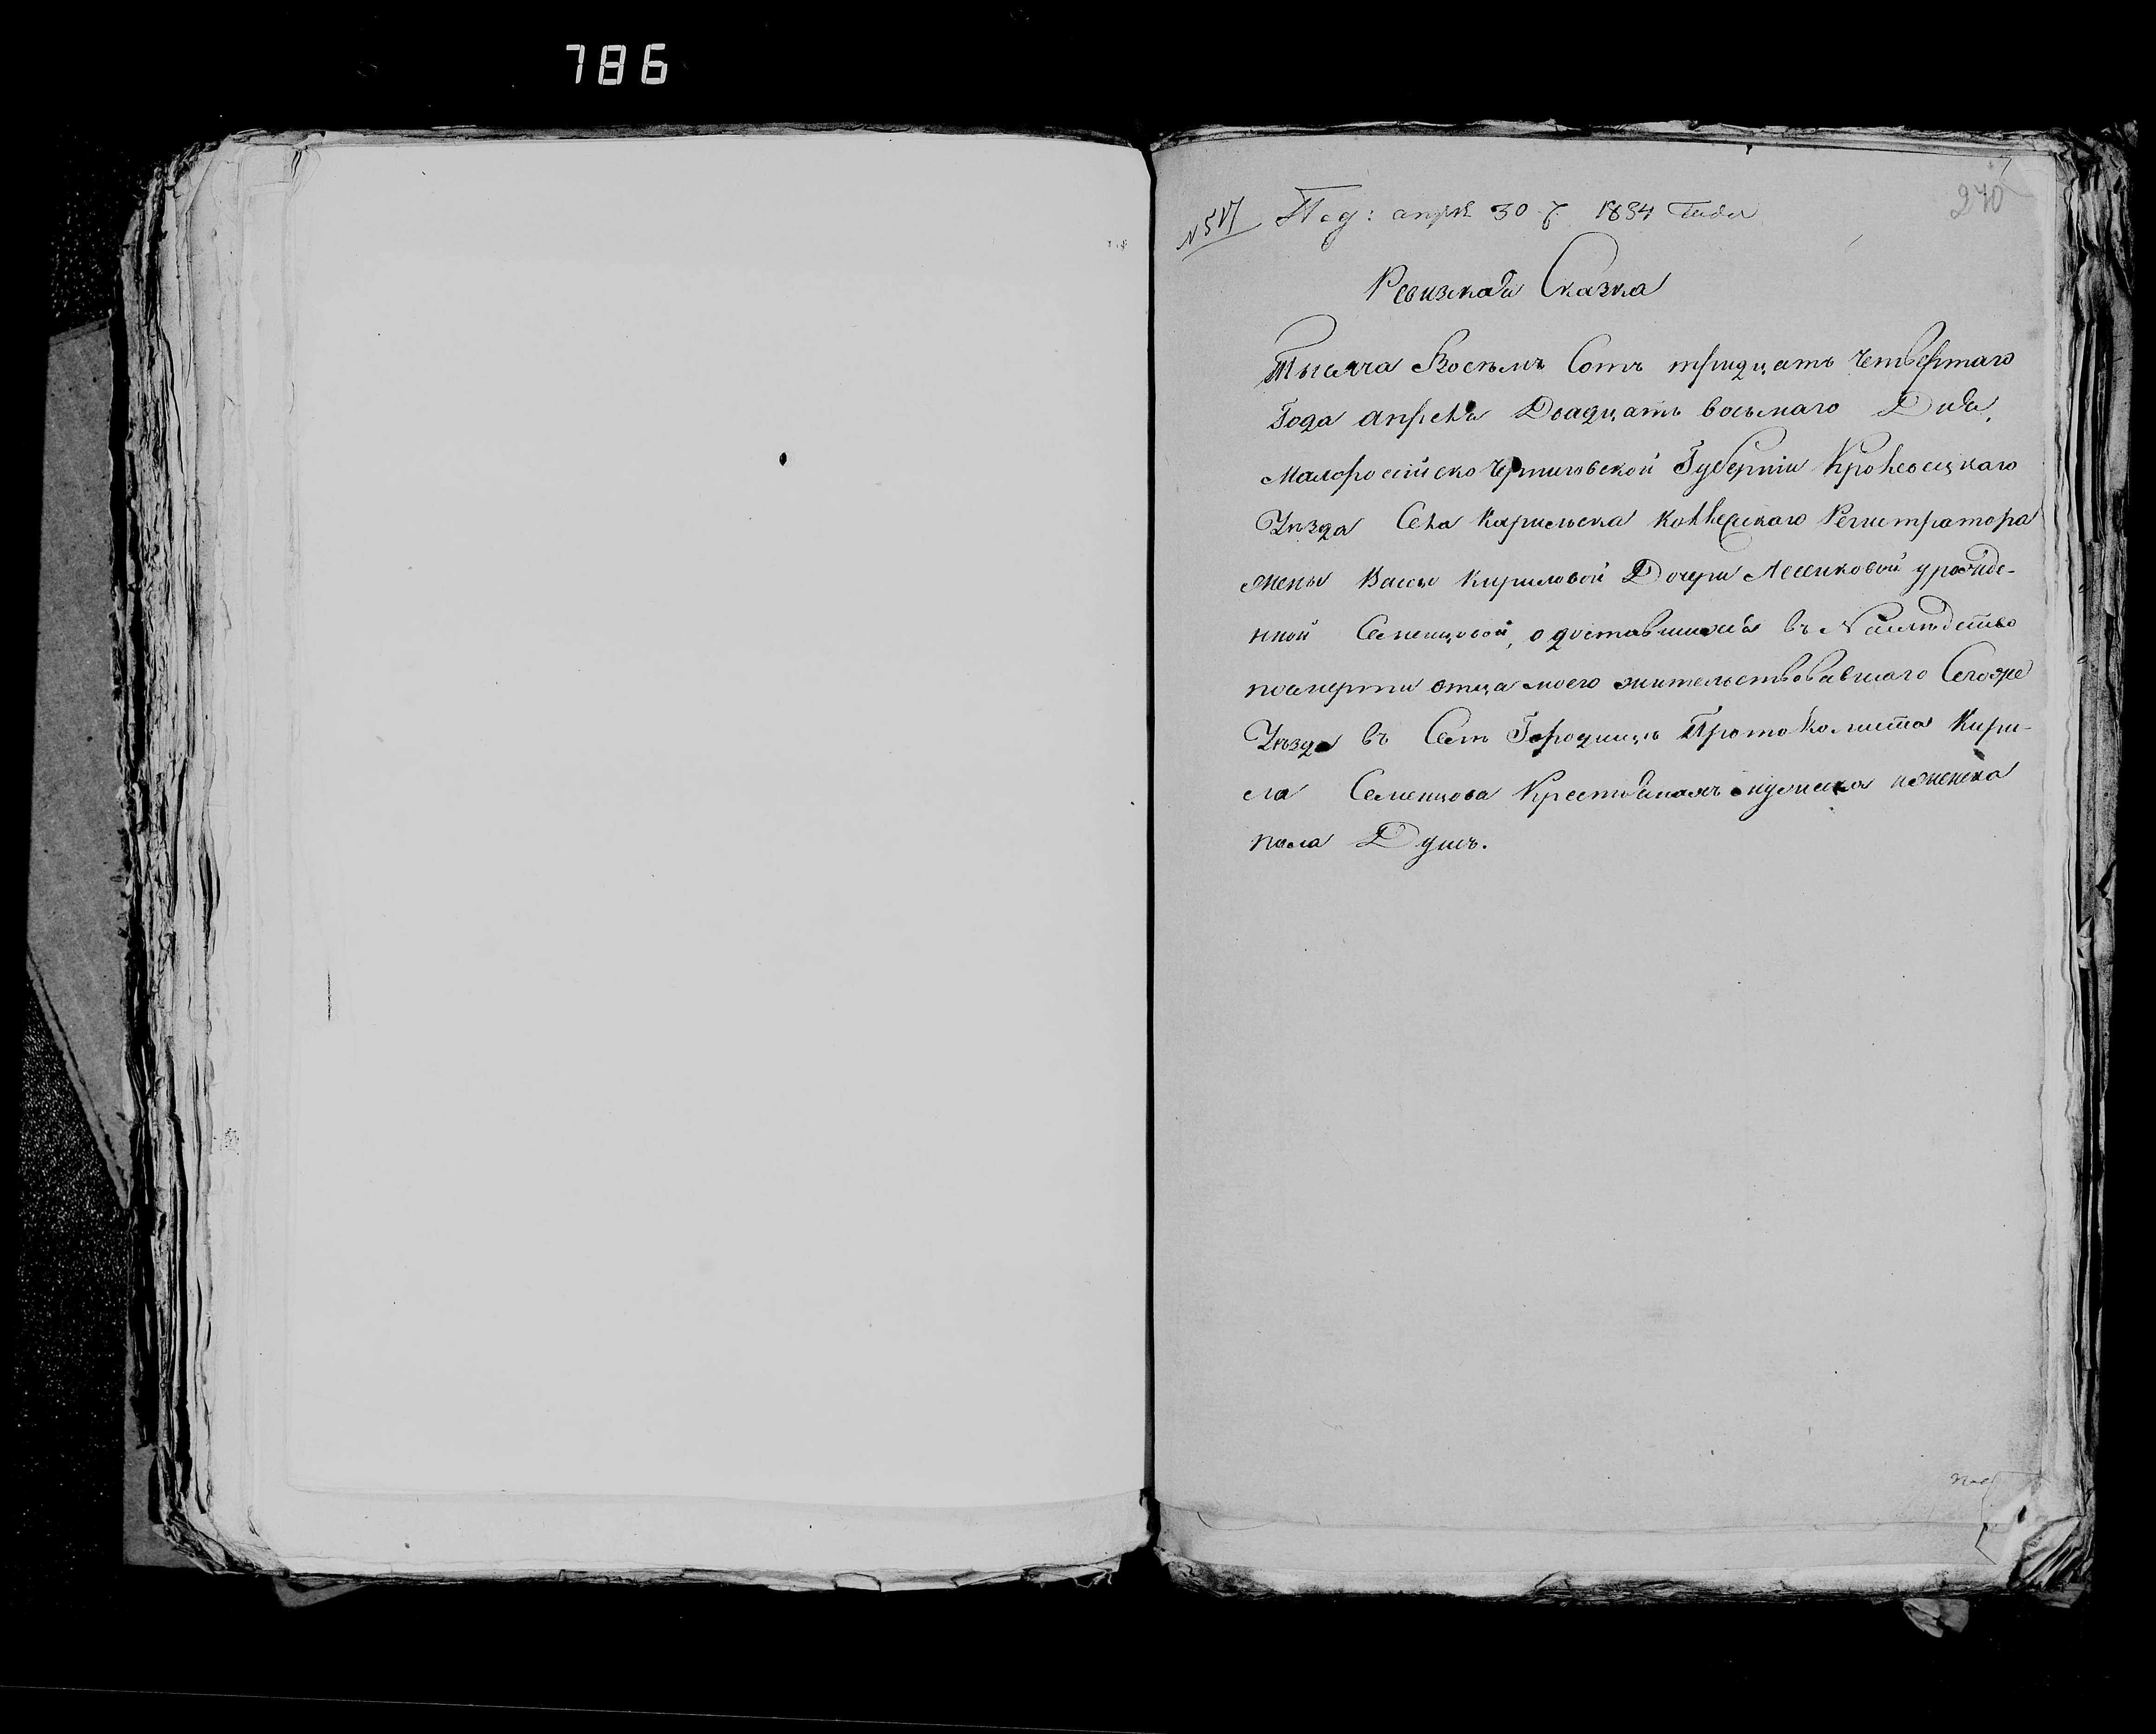 786
270
Под: апрѣ 30 г. 1834 Года
Ревизская Сказка
Тысяча Восемъ Сотъ тридцать Четвертаго
Года апреля Двадцать восьмаго Дня,
Малоросійско Черниговской Губерніи Кролевецкаго
Уѣзда Села Кирилъска Коллежскаго Регистратора
жены Вассы Кириловой Дочери Лесенковой урожде-
нной Семенцовой, о доставшихся въ Наслѣдство
посмерти отца моего жительствовавшаго Сегоже
Уѣзда въ Селѣ Городищѣ Протоколиста Кири-
ла Семенцова Крестьянахъ мужеска иженска
пола Душъ.